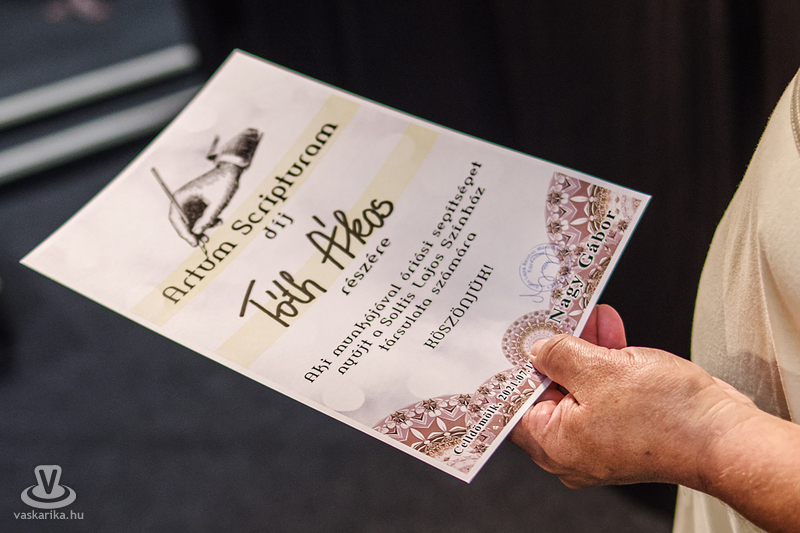 Artúm Scripturam
díj
Tóth Ákos
részére
Aki munkájával óriási segítségét
nyújt a Soltis Lajos Színház
társulata számára
KÖSZÖNJÜK!
Nagy Gábor
Celldömölk, 2021.07.
vaskarika.hu